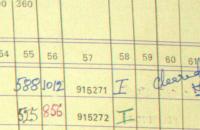 00 360
54 55 56 57 58 59 60 61
588 1012 915271 I cleared
555 856 915272 I